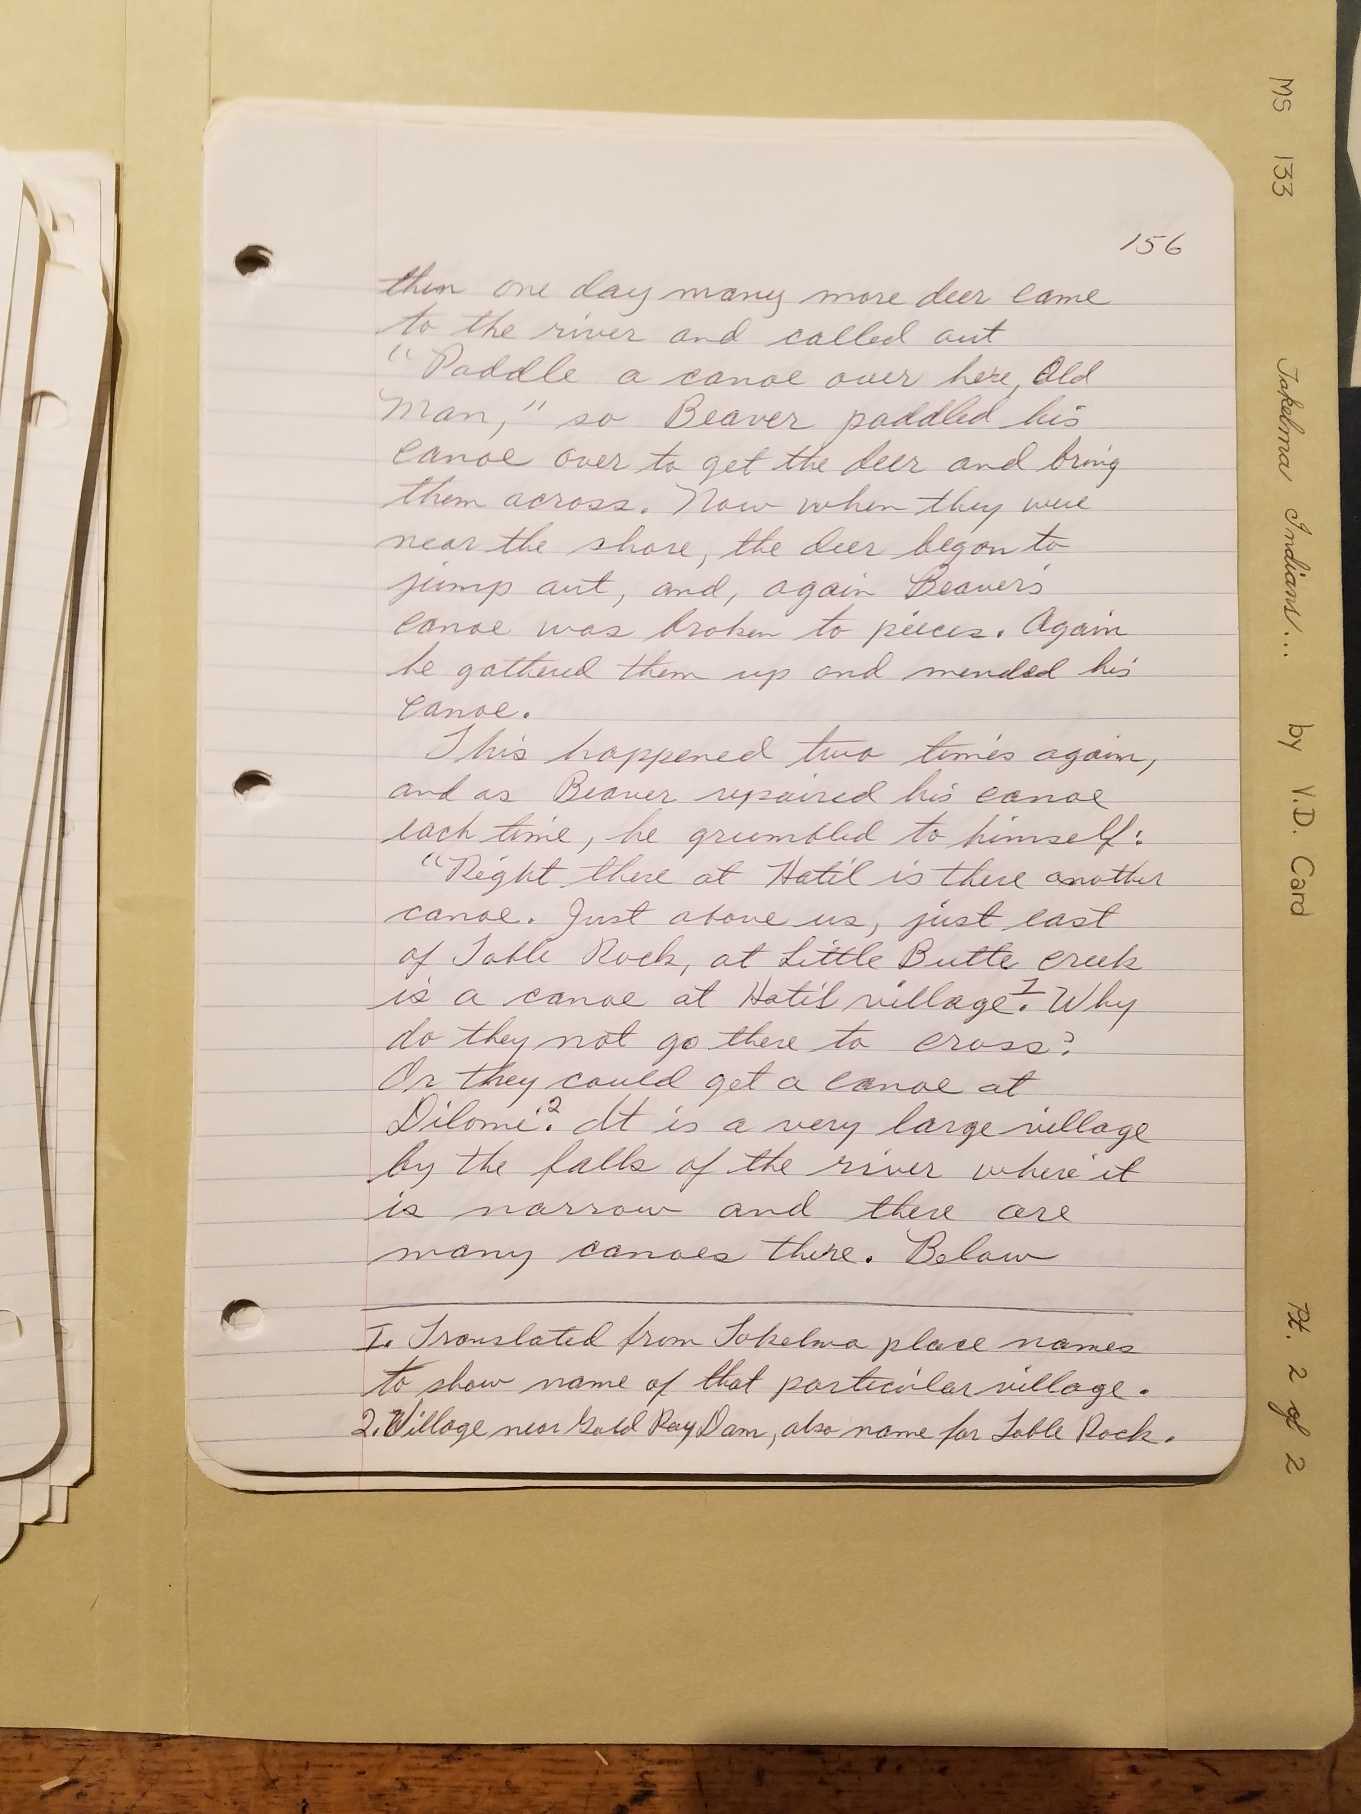 156
then one day many more deer came
to the river and called out
"Paddle a canoe over here, Old
Man," so Beaver paddled his
canoe over to get the deer and bring
them across. Now when they were
near the shore, the deer began to
jump out, and, again Beaver's
canoe was broken to pieces. Again
he gathered them up and mended his
canoe.
This happened two times again,
and as Beaver repaired his canoe
each time, he grumbled to himself:
"Right there at Hatil is there another
canoe. Just above us, just east
of Table Rock, at Little Butte creek
is a canoe at Hatil village¹. Why
do they not go there to cross?
Or they could get a canoe at
Dilomi.² It is a very large village
by the falls of the river where it
is narrow and there are
many canoes there. Below
1. Translated from Takelma place names
to show name of that particular village.
2. Village near Gold Ray Dam, also name for Table Rock.
MS 133 Takelma Indians... by V.D. Card Pt. 2 of 2